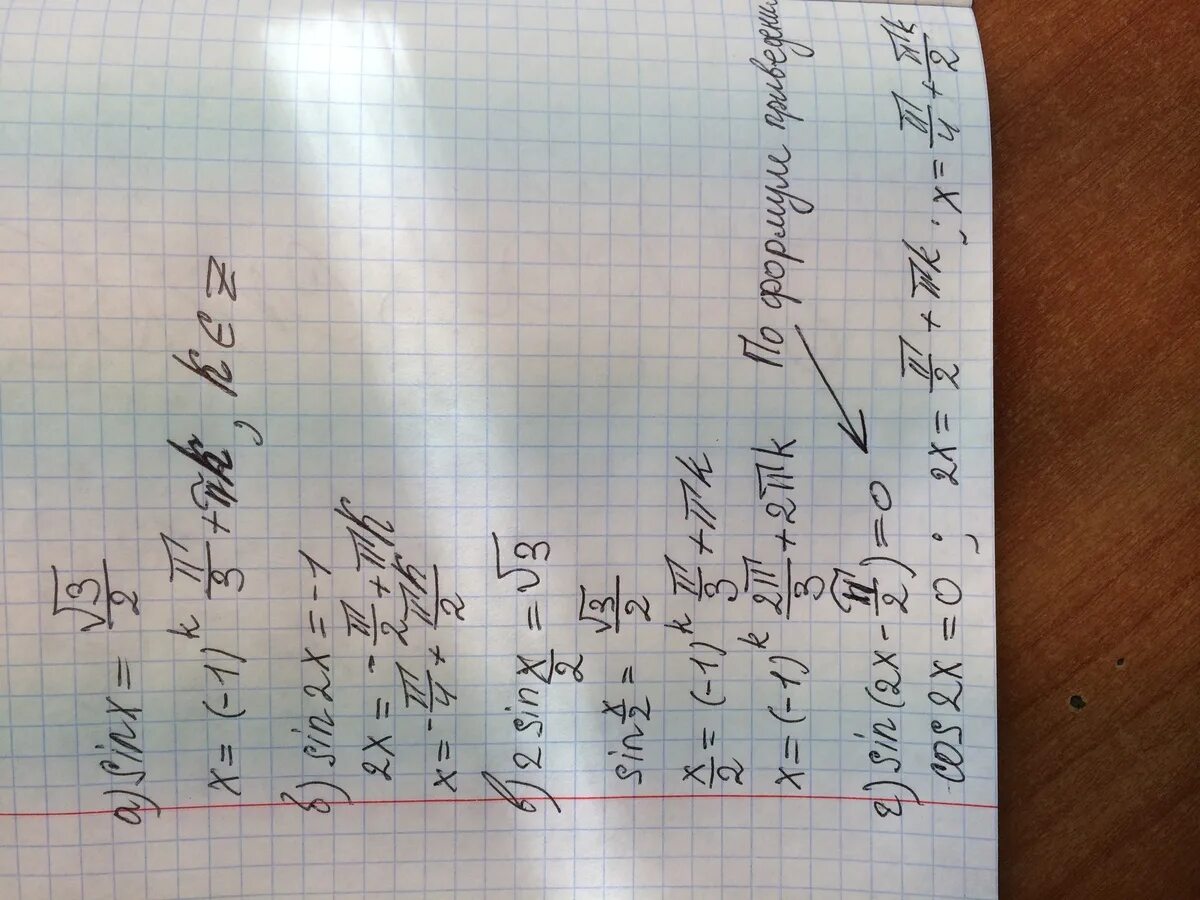 а) sin x = √3/2
x = (-1)^k π/3 + πk, k ∈ Z
б) sin 2x = -1
2x = -π/2 + πk
x = -π/4 + πk/2
в) 2 sin x/2 = √3
sin x/2 = √3/2
x/2 = (-1)^k π/3 + πk
x = (-1)^k 2π/3 + 2πk
По формуле приведения
г) sin (2x - π/2) = 0
cos 2x = 0 ; 2x = π/2 + πk ; x = π/4 + πk/2